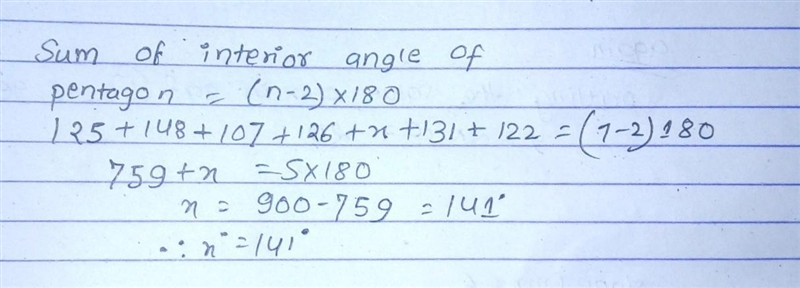 Sum of interior angle of
pentagon = (n-2)×180
125+148+107+126+x+131+122 = (7-2)180
759+x = 5×180
x = 900-759 = 141°
∴ x° = 141°